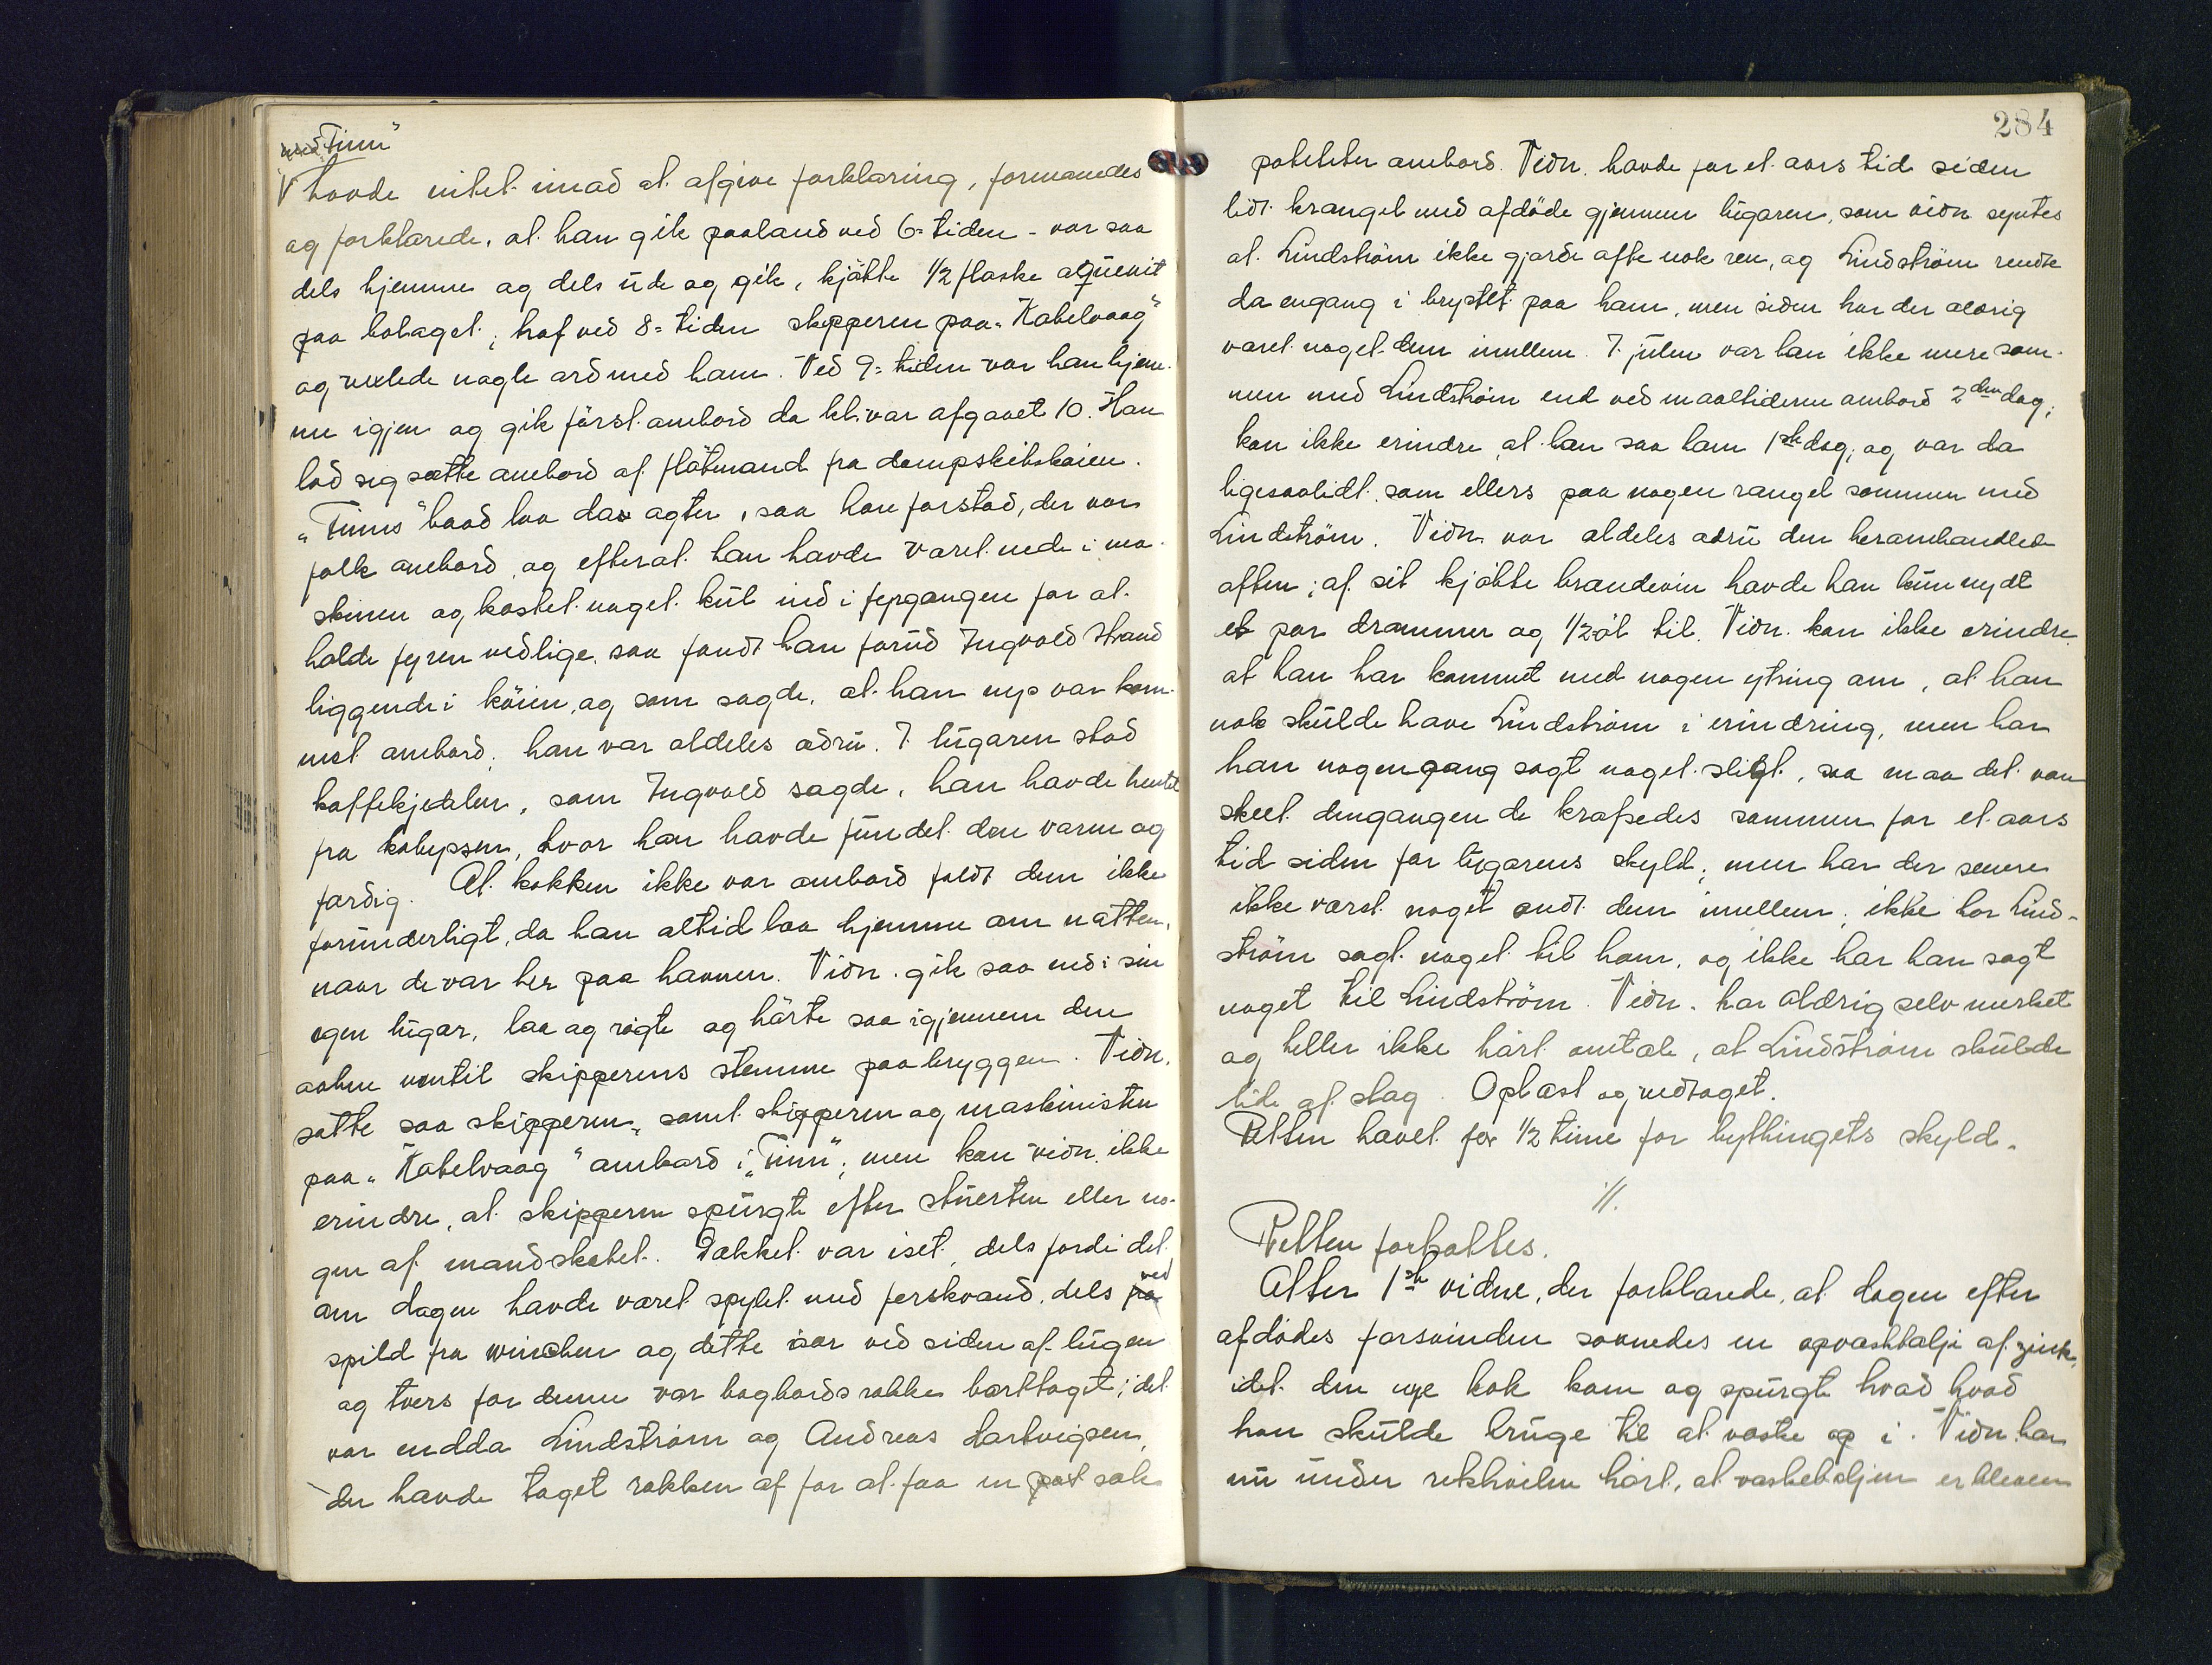 med "Finn"
V havde intet imod at afgive forklaring, formanedes
og forklarede, at han gik paaland ved 6=tiden - var saa
dels hjemme og dels ude og gik, kjøbte 1/2 flaske aqvevit
paa bolaget; traf ved 8=tiden skipperen paa "Kabelvaag"
og vexlede nogle ord med ham. Ved 9=tiden var han hjem-
me igjen og gik først ombord da kl. var afgaaet 10. Han
lod sig sætte ombord af fløtmand fra dampskibskaien.
"Finns" baad laa da agter, saa han forstod, der var
folk ombord, og efterat han havde været nede i ma-
skinen og kastet noget kul ind i fyrgangen for at
holde fyren vedlige, saa fandt han forud Ingvald Strand
liggende i køien, og som sagde, at han nys var kom-
met ombord; han var aldeles ædru. I lugaren stod
kaffekjedelen, som Ingvald sagde, han havde hentet
fra kabyssen, hvor han havde fundet den varm og
færdig. At kokken ikke var ombord faldt dem ikke
forunderligt, da han altid laa hjemme om natten,
naar de var her paa havnen. Vidn. gik saa ned i sin
egen lugar, laa og røgte og hørte saa igjennem den
aabne ventil skipperens stemme paa bryggen. Vidn.
satte saa skipperen, samt skipperen og maskinisten
paa "Kabelvaag" ombord i "Finn"; men kan vidn. ikke
erindre, at skipperen spurgte efter stuerten eller no-
gen af mandskabet. Dækket var iset, dels fordi det
om dagen havde været spylet med ferskvand, dels fra ved
spild fra winchen og dette især ved siden af lugen
og tvers for denne var bagbords række borttaget; det
var endda Lindstrøm og Andreas Hartvigsen,
der havde taget rækken af for at faa en post salt
284
poteter ombord. Vidn. havde for et aars tid siden
lidt krangel med afdøde gjennem lugaren, som vidn. syntes
at Lindstrøm ikke gjorde ofte nok ren, og Lindstrøm rendte
da engang i brystet paa ham, men siden har der aldrig
været noget dem imellem. I julen var han ikke mere sam-
men med Lindstrøm end ved maaltiderne ombord 2den dag;
kan ikke erindre, at han saa ham 1ste dag, og var da
ligesaalidt som ellers paa nogen rangel sammen med
Lindstrøm. Vidn. var aldeles ædru den heromhandlede
aften; af sit kjøbte brændevin havde han kun nydt
et par drammer og 1/2 øl til. Vidn. kan ikke erindre
at han har kommet med nogen ytring om, at han
nok skulde have Lindstrøm i erindring, men har
han nogengang sagt noget sligt, saa maa det være
skeet dengangen de krafsedes sammen for et aars
tid siden for lugarens skyld; men har der senere
ikke været noget ondt dem imellem; ikke har Lind-
strøm sagt noget til ham, og ikke har han sagt
noget til Lindstrøm. Vidn. har aldrig selv merket
og heller ikke hørt omtale, at Lindstrøm skulde
lide af slag. Oplæst og vedtaget.
Retten hævet for 1/2 time for bythingets skyld.
//.
Retten fortsattes.
Atter 1ste vidne, der forklarede, at dagen efter
afdødes forsvinden savnedes en opvaskbalje af zink,
idet den nye kok kom og spurgte hvad hvad
han skulde bruge til at vaske op i. Vidn. har
nu under rethvilen hørt, at vaskebaljen er bleven